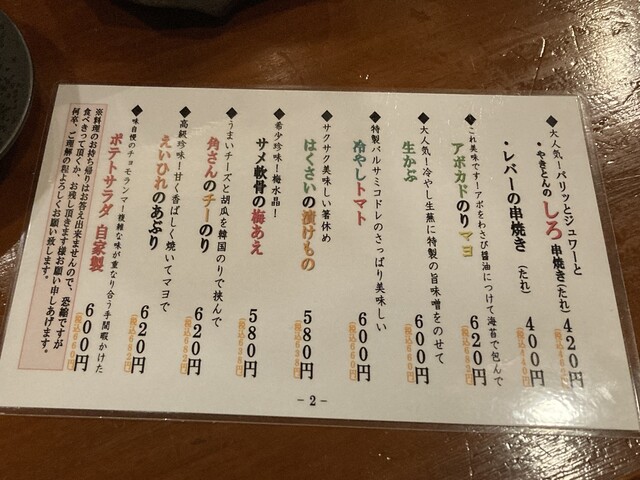 ◆大人気！パリッとジュワーと
・やきとんのしろ串焼き（たれ） 420円
（税込462円）
・レバーの串焼き（たれ） 400円
（税込440円）
◆これ美味です！アボをわさび醤油につけて海苔で包んで
アボカドのりマヨ 620円
（税込682円）
◆大人気！冷やし生蕪に特製の旨味噌をのせて
生かぶ 600円
（税込660円）
◆特製バルサミコドレのさっぱり美味しい
冷やしトマト 600円
（税込660円）
◆サクサク美味しい箸休め
はくさいの漬けもの 580円
（税込638円）
◆希少珍味！梅水晶！
サメ軟骨の梅あえ 580円
（税込638円）
◆うまいチーズと胡瓜を韓国のりで挟んで
角さんのチーのり 620円
（税込682円）
◆高級珍味！甘く香ばしく焼いてマヨで
えいひれのあぶり 620円
（税込682円）
◆味自慢のチョモランマ！複雑な味が重なり合う手間暇かけた
ポテトサラダ 自家製 600円
（税込660円）
※料理のお持ち帰りはお答え出来ませんので、恐縮ですが
食べきって頂くか、お残し頂きます様お願い申しあげます。
何卒、ご理解の程よろしくお願い致します。
- 2 -